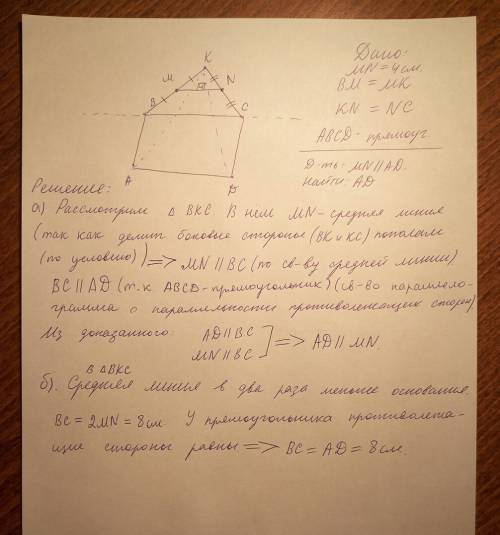 K
M
N
B
C
A
D
Дано:
MN = 4 см.
BM = MK
KN = NC
ABCD - прямоуг
Д-ть: MN || AD.
Найти: AD
Решение:
а) Рассмотрим △ BKC. В нём MN - средняя линия
(так как делит боковые стороны (BK и KC) пополам
(по условию)) => MN || BC (по св-ву средней линии)
BC || AD (т.к ABCD - прямоугольник) (св-во параллело-
грамма о параллельности противолежащих сторон)
Из доказанного: AD || BC
MN || BC ] => AD || MN.
В △BKC
б). Средняя линия в два раза меньше основания.
BC = 2MN = 8 см. У прямоугольника противолежа-
щие стороны равны => BC = AD = 8 см.